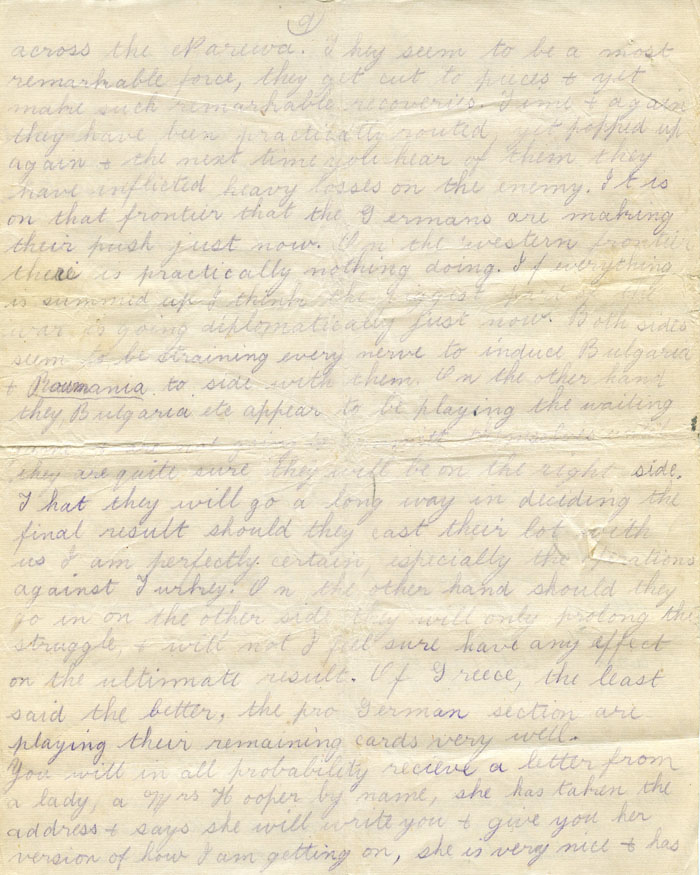 9
across the Narewa. They seem to be a most
remarkable force, they get cut to pieces & yet
make such remarkable recoveries. Time & again
they have been practically routed, yet popped up
again & the next time you hear of them they
have inflicted heavy losses on the enemy. It is
on that frontier that the Germans are making
their push just now. On the western frontier
there is practically nothing doing. If everything
is summed up I think the biggest part of the
war is going diplomatically just now. Both sides
seem to be straining every nerve to induce Bulgaria
& Roumania to side with them. On the other hand
they, Bulgaria etc appear to be playing the waiting
they are quite sure they will be on the right side.
That they will go a long way in deciding the
final result should they cast their lot with
us I am perfectly certain, especially the operations
against Turkey. On the other hand should they
go in on the other side they will only prolong the
struggle, & will not I feel sure have any effect
on the ultimnate result. Of Greece, the least
said the better, the pro German section are
playing their remaining cards very well.
You will in all probability recieve a letter from
a lady, a Mrs Hooper by name, she has taken the
address & says she will write you & give you her
version of how I am getting on, she is very nice & has